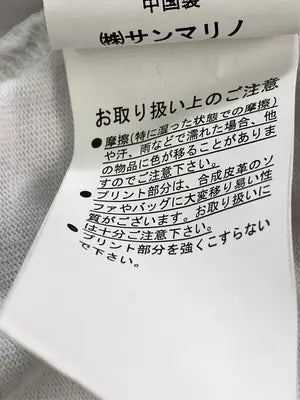 中国製
㈱サンマリノ
お取り扱い上のご注意
●摩擦(特に湿った状態での摩擦)
や汗、雨などで濡れた場合、他
の物品に色が移ることがありま
すのでご注意下さい。
●プリント部分は、合成皮革のソ
ファやバッグに大変移り易い性
質がございます。お取り扱いに
は十分ご注意下さい。
●プリント部分を強くこすらない
で下さい。